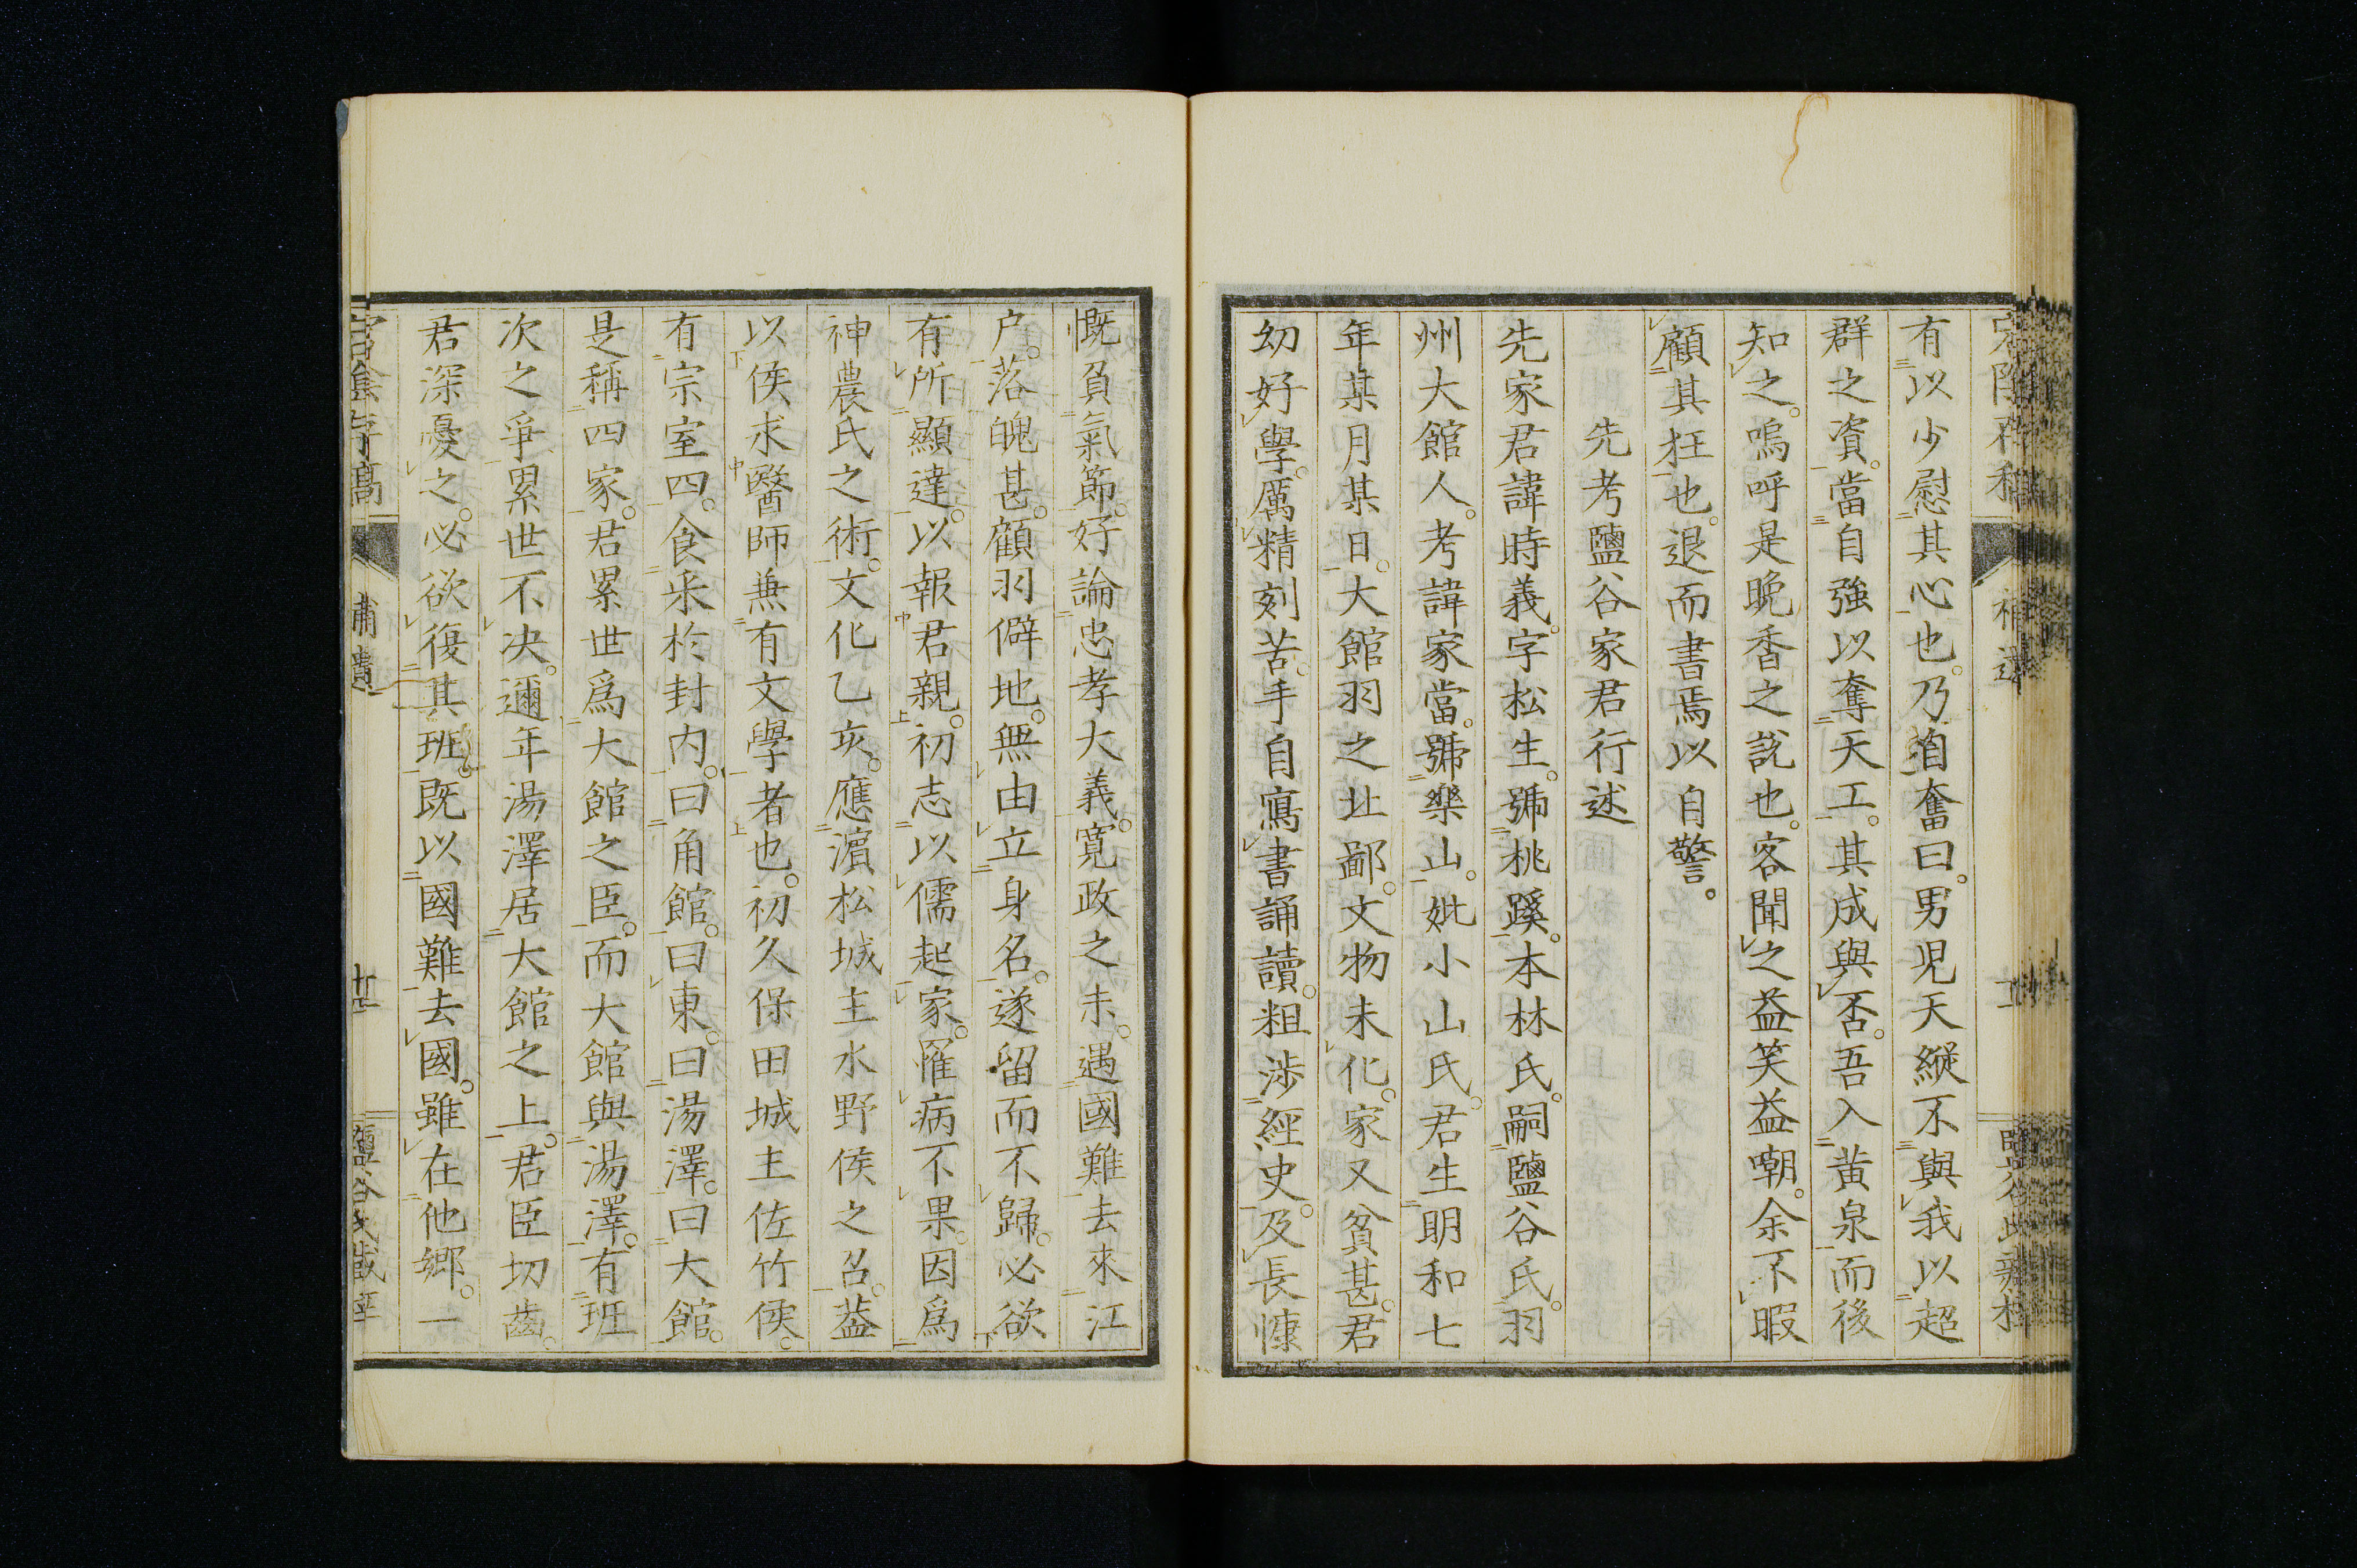 有以少慰其心也。乃自奮曰。男児天縦不與我以超
群之資。當自強以奪天工。其成與否。吾入黄泉而後
知之。嗚呼是晩香之説也。客聞之益笑益嘲。余不暇
顧其狂也。退而書焉以自警。
先考鹽谷家君行述
先家君諱時義。字松生。號桃蹊。本林氏。嗣鹽谷氏。羽
州大館人。考諱家當。號樂山。妣小山氏。君生明和七
年某月某日。大館羽之北鄙。文物未化。家又貧甚。君
幼好學。厲精刻苦。手自寫書誦讀。粗渉經史。及長慷
慨負氣節。好論忠孝大義。寛政之末。遇國難去來江
户。落魄甚。顧羽僻地。無由立身名。遂留而不歸。必欲
有所顯達。以報君親。初志以儒起家。罹病不果。因爲
神農氏之術。文化乙亥。應濵松城主水野侯之召。葢
以侯求醫師無有文學者也。初久保田城主佐竹侯。
有宗室四。食采於封内。曰角館。曰東。曰湯澤。曰大館。
是稱四家。君累世爲大館之臣。而大館與湯澤。有班
次之爭。累世不决。邇年湯澤居大館之上。君臣切齒。
君深憂之。必欲復其班。既以國難去國。雖在他郷。一
補遺
廿二